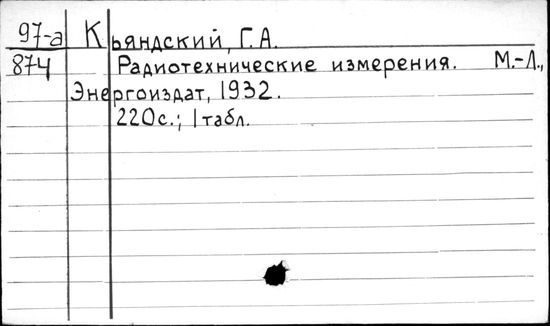 97-а Кьяндский, Г.А.
874 Радиотехнические измерения. М.-Л.,
Энергоиздат, 1932.
220с.; 1 табл.